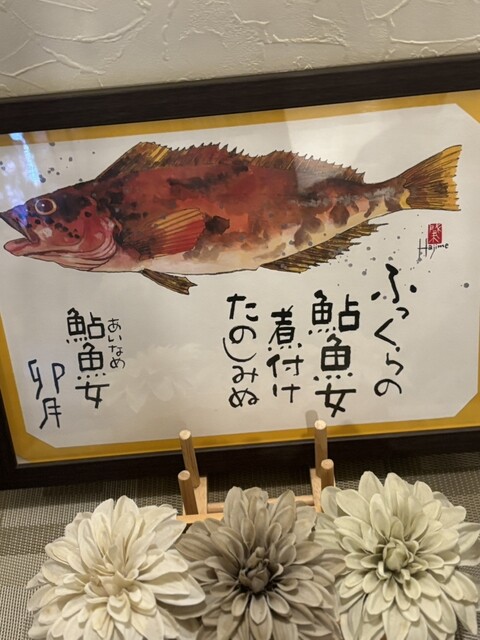 ふっくらの
鮎魚女
煮付け
たのしみぬ
あいなめ
鮎魚女
卯月
Hajime